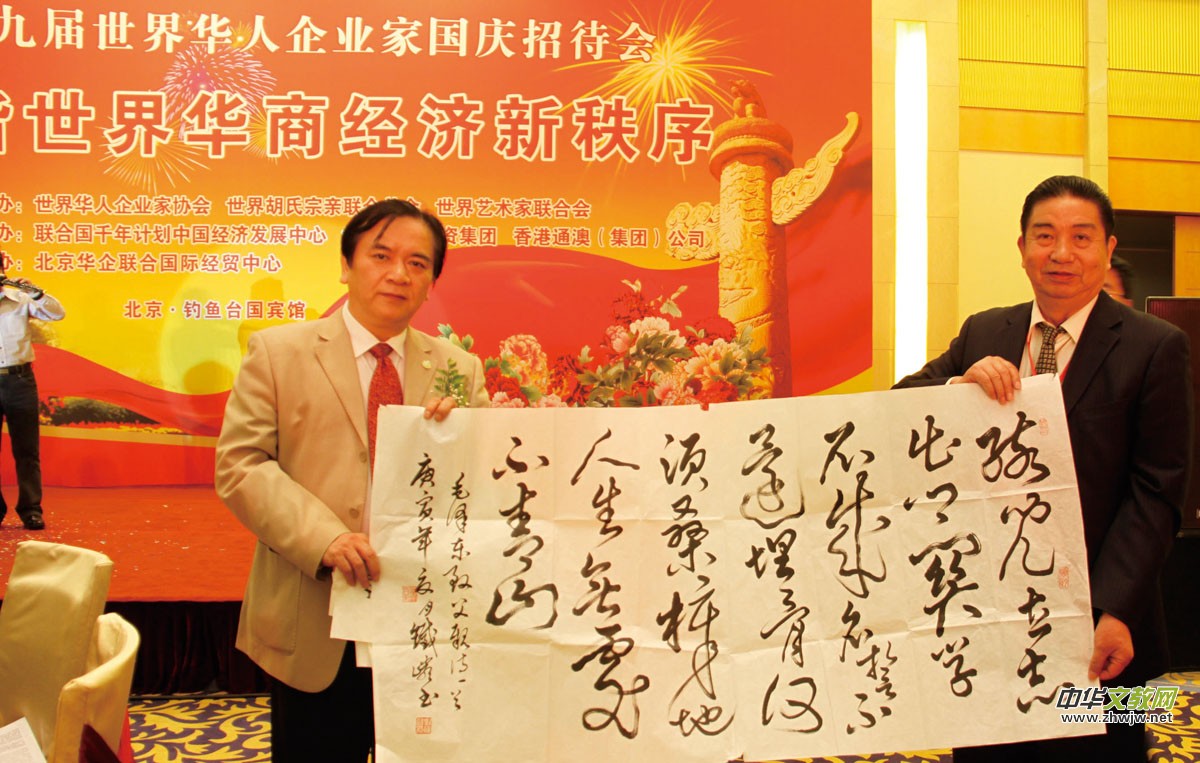 九届世界华人企业家国庆招待会
世界华商经济新秩序
办：世界华人企业家协会 世界胡氏宗亲联合 会 世界艺术家联合会
办：联合国千年计划中国经济发展中心 资集团 香港通澳（集团）公司
办：北京华企联合国际经贸中心
北京·钓鱼台国宾馆
孩儿立志
出乡关学
不成名誓不
还埋骨何
须桑梓地
人生无处
不青山
毛泽东致父亲诗一首
庚寅年夏月鐵 书
中华文教网
www.zhwjw.net